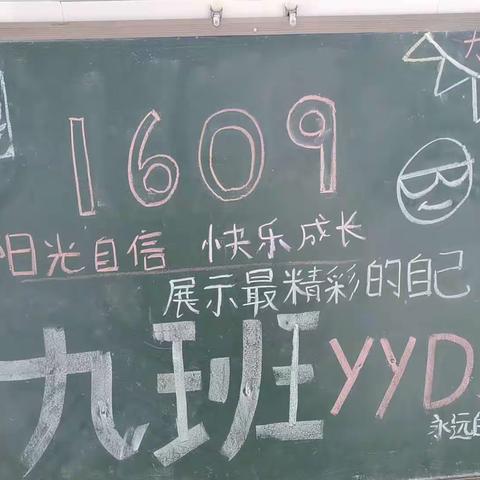 1609
阳光自信 快乐成长
展示最精彩的自己
九班YYD
永远